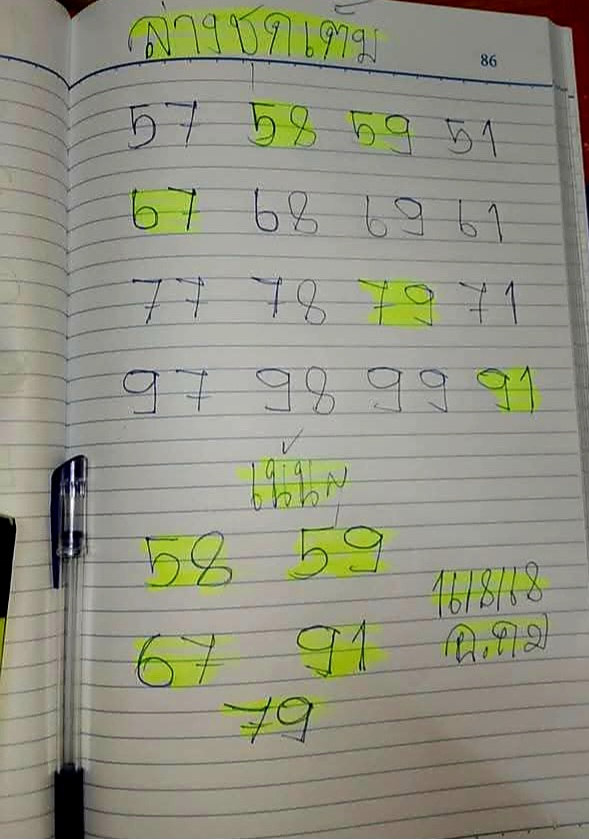 ล่างชุดเต็ม
86
57 58 59 51
67 68 69 61
77 78 79 71
97 98 99 91
เน้น
58 59
67 91
79